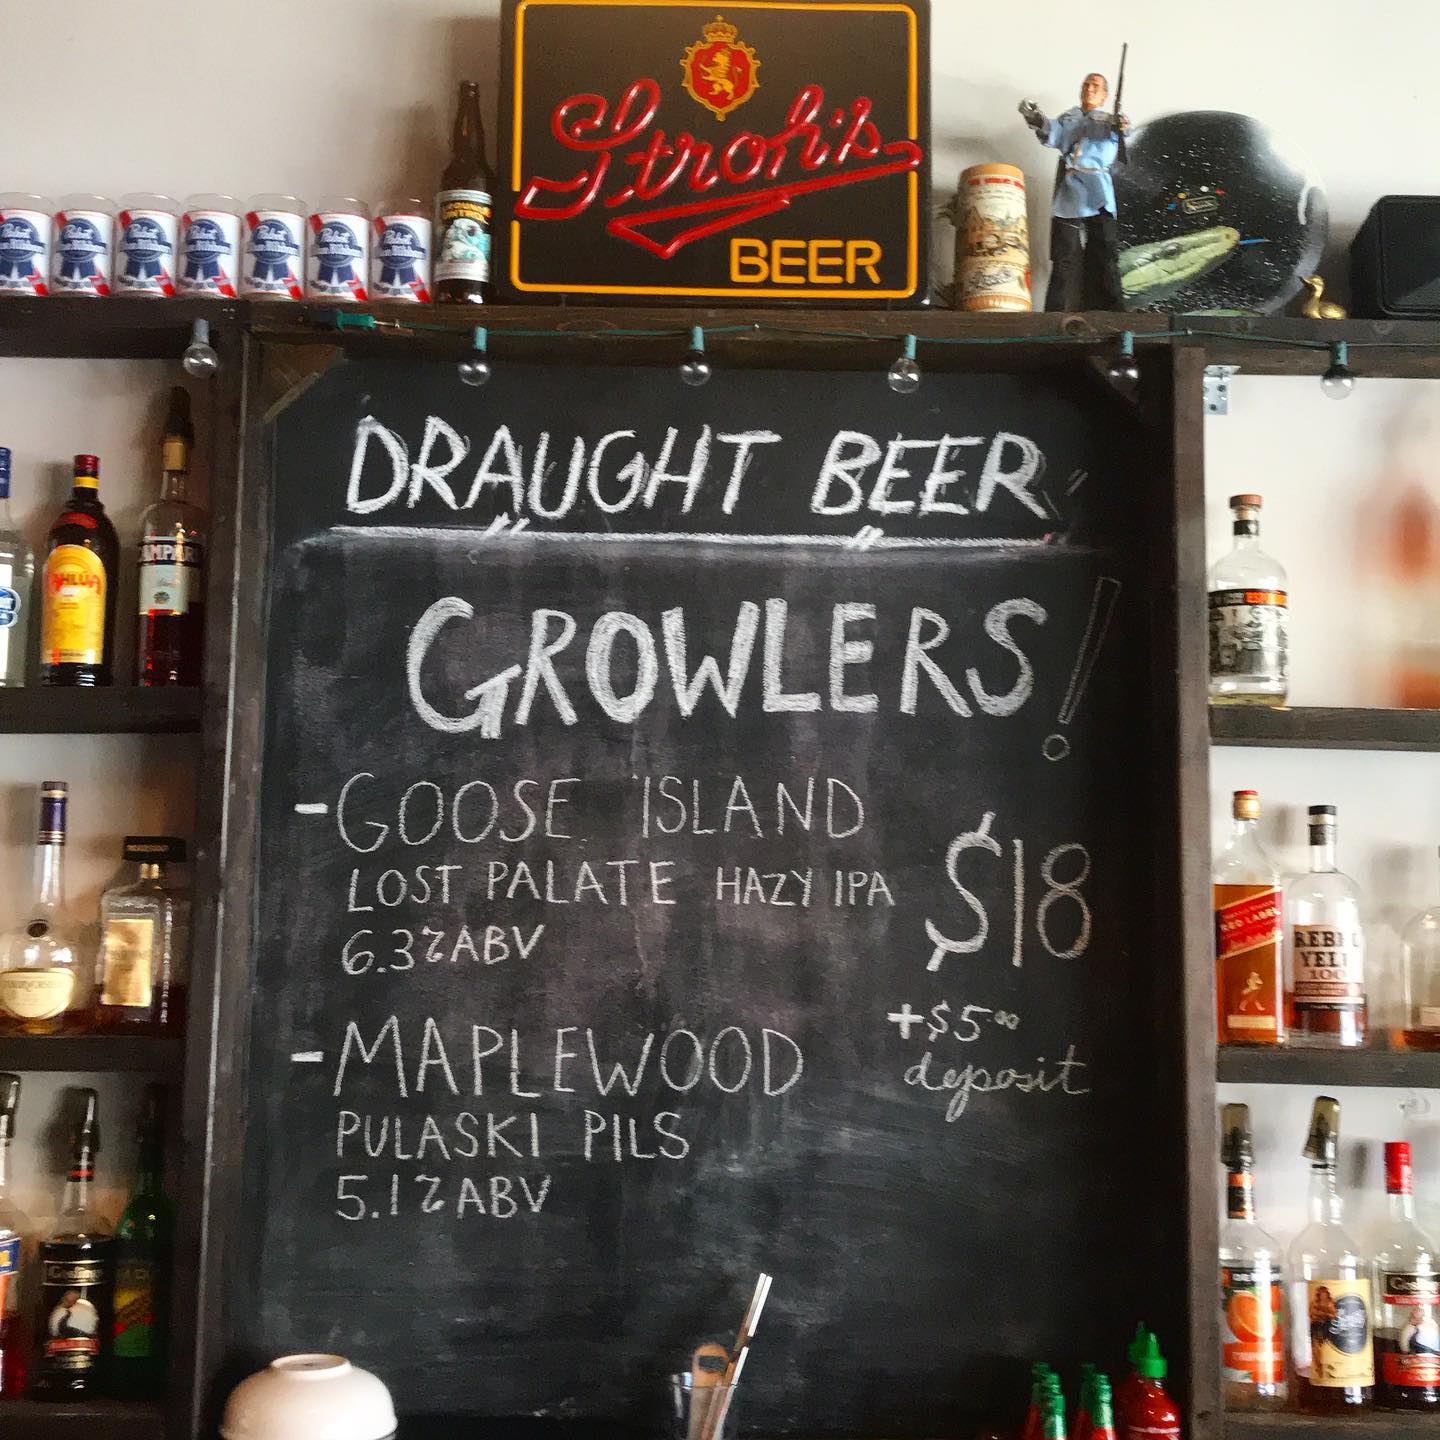 Stroh's
BEER
DRAUGHT BEER
GROWLERS!
-GOOSE ISLAND
LOST PALATE HAZY IPA
6.3% ABV
$18
+$5.00
deposit
-MAPLEWOOD
PULASKI PILS
5.1% ABV
Pabst
KAHLÚA
CAMPARI
RED LABEL
REBEL
YELL
100